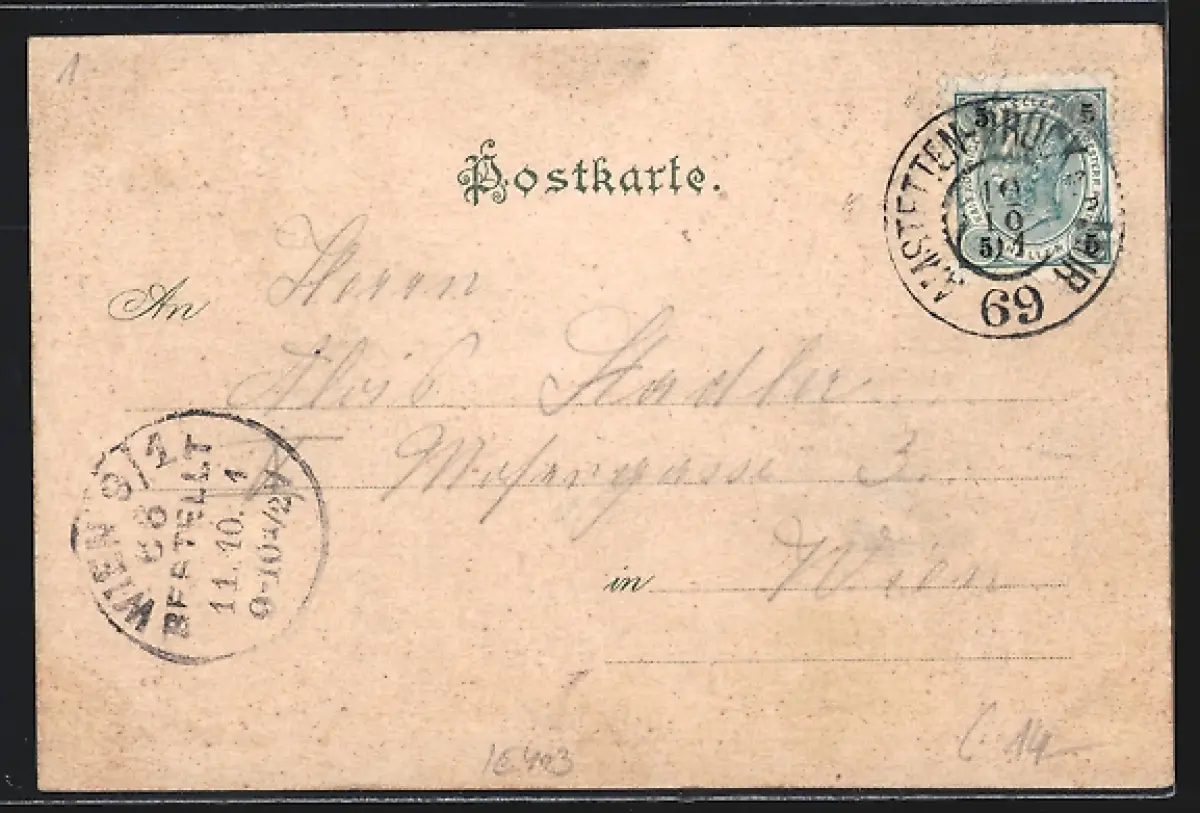 1
Postkarte.
AMSTETTEN-BRUCK A/MUR
10
10
1
69
5 5
5 5
An Herrn
Alois Stadler
Wien 9/1
66
BESTELLT
11.10.1
9-10
3.
in Wien
C. 14